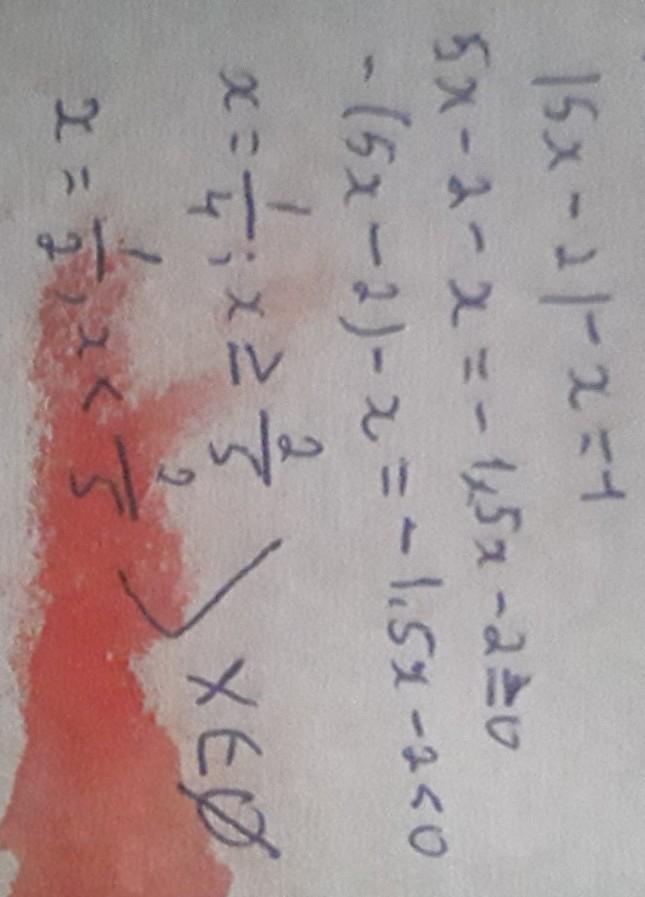 |5x-2|-x=-1
5x-2-x=-1,5x-2≥0
-(5x-2)-x=-1,5x-2<0
x=1/4; x≥2/5
x=1/2, x<2/5 > x∈∅